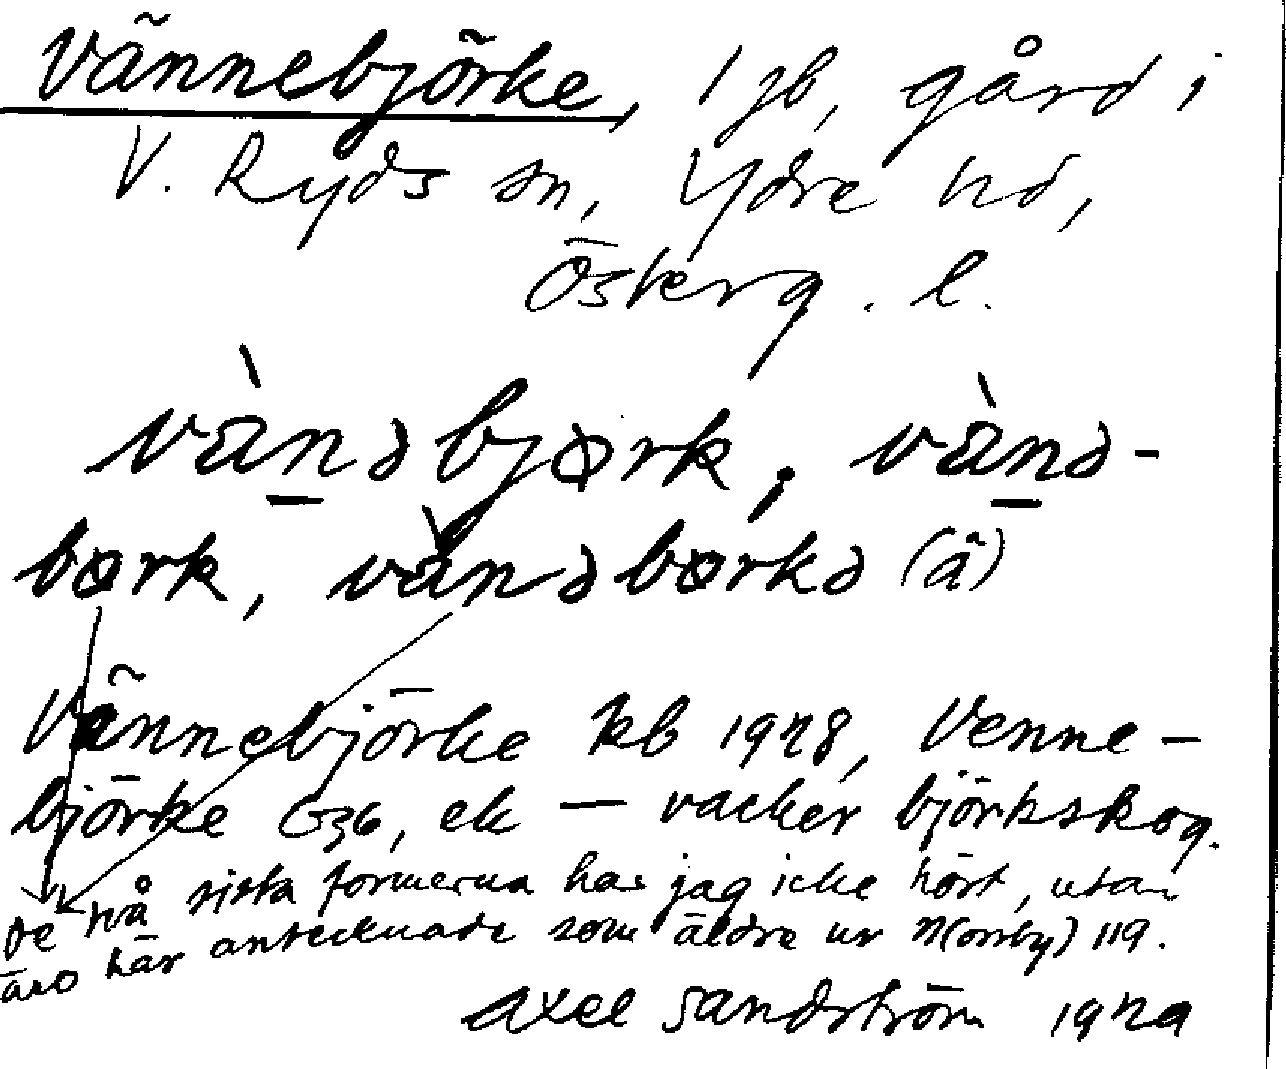 Vännebjörke, 1 jb, gård i
V. Ryds sn, Ydre hd,
Österg. l.
vànəbjørk, vànə-
børk, vànəbørkə (ä)
Vännebjörke kb 1928, Venne-
björke G36, ek — vacker björkskog.
De två sista formerna har jag icke hört, utan
äro här antecknade som äldre ur N(orrby) 119.
Axel Sandström 1929